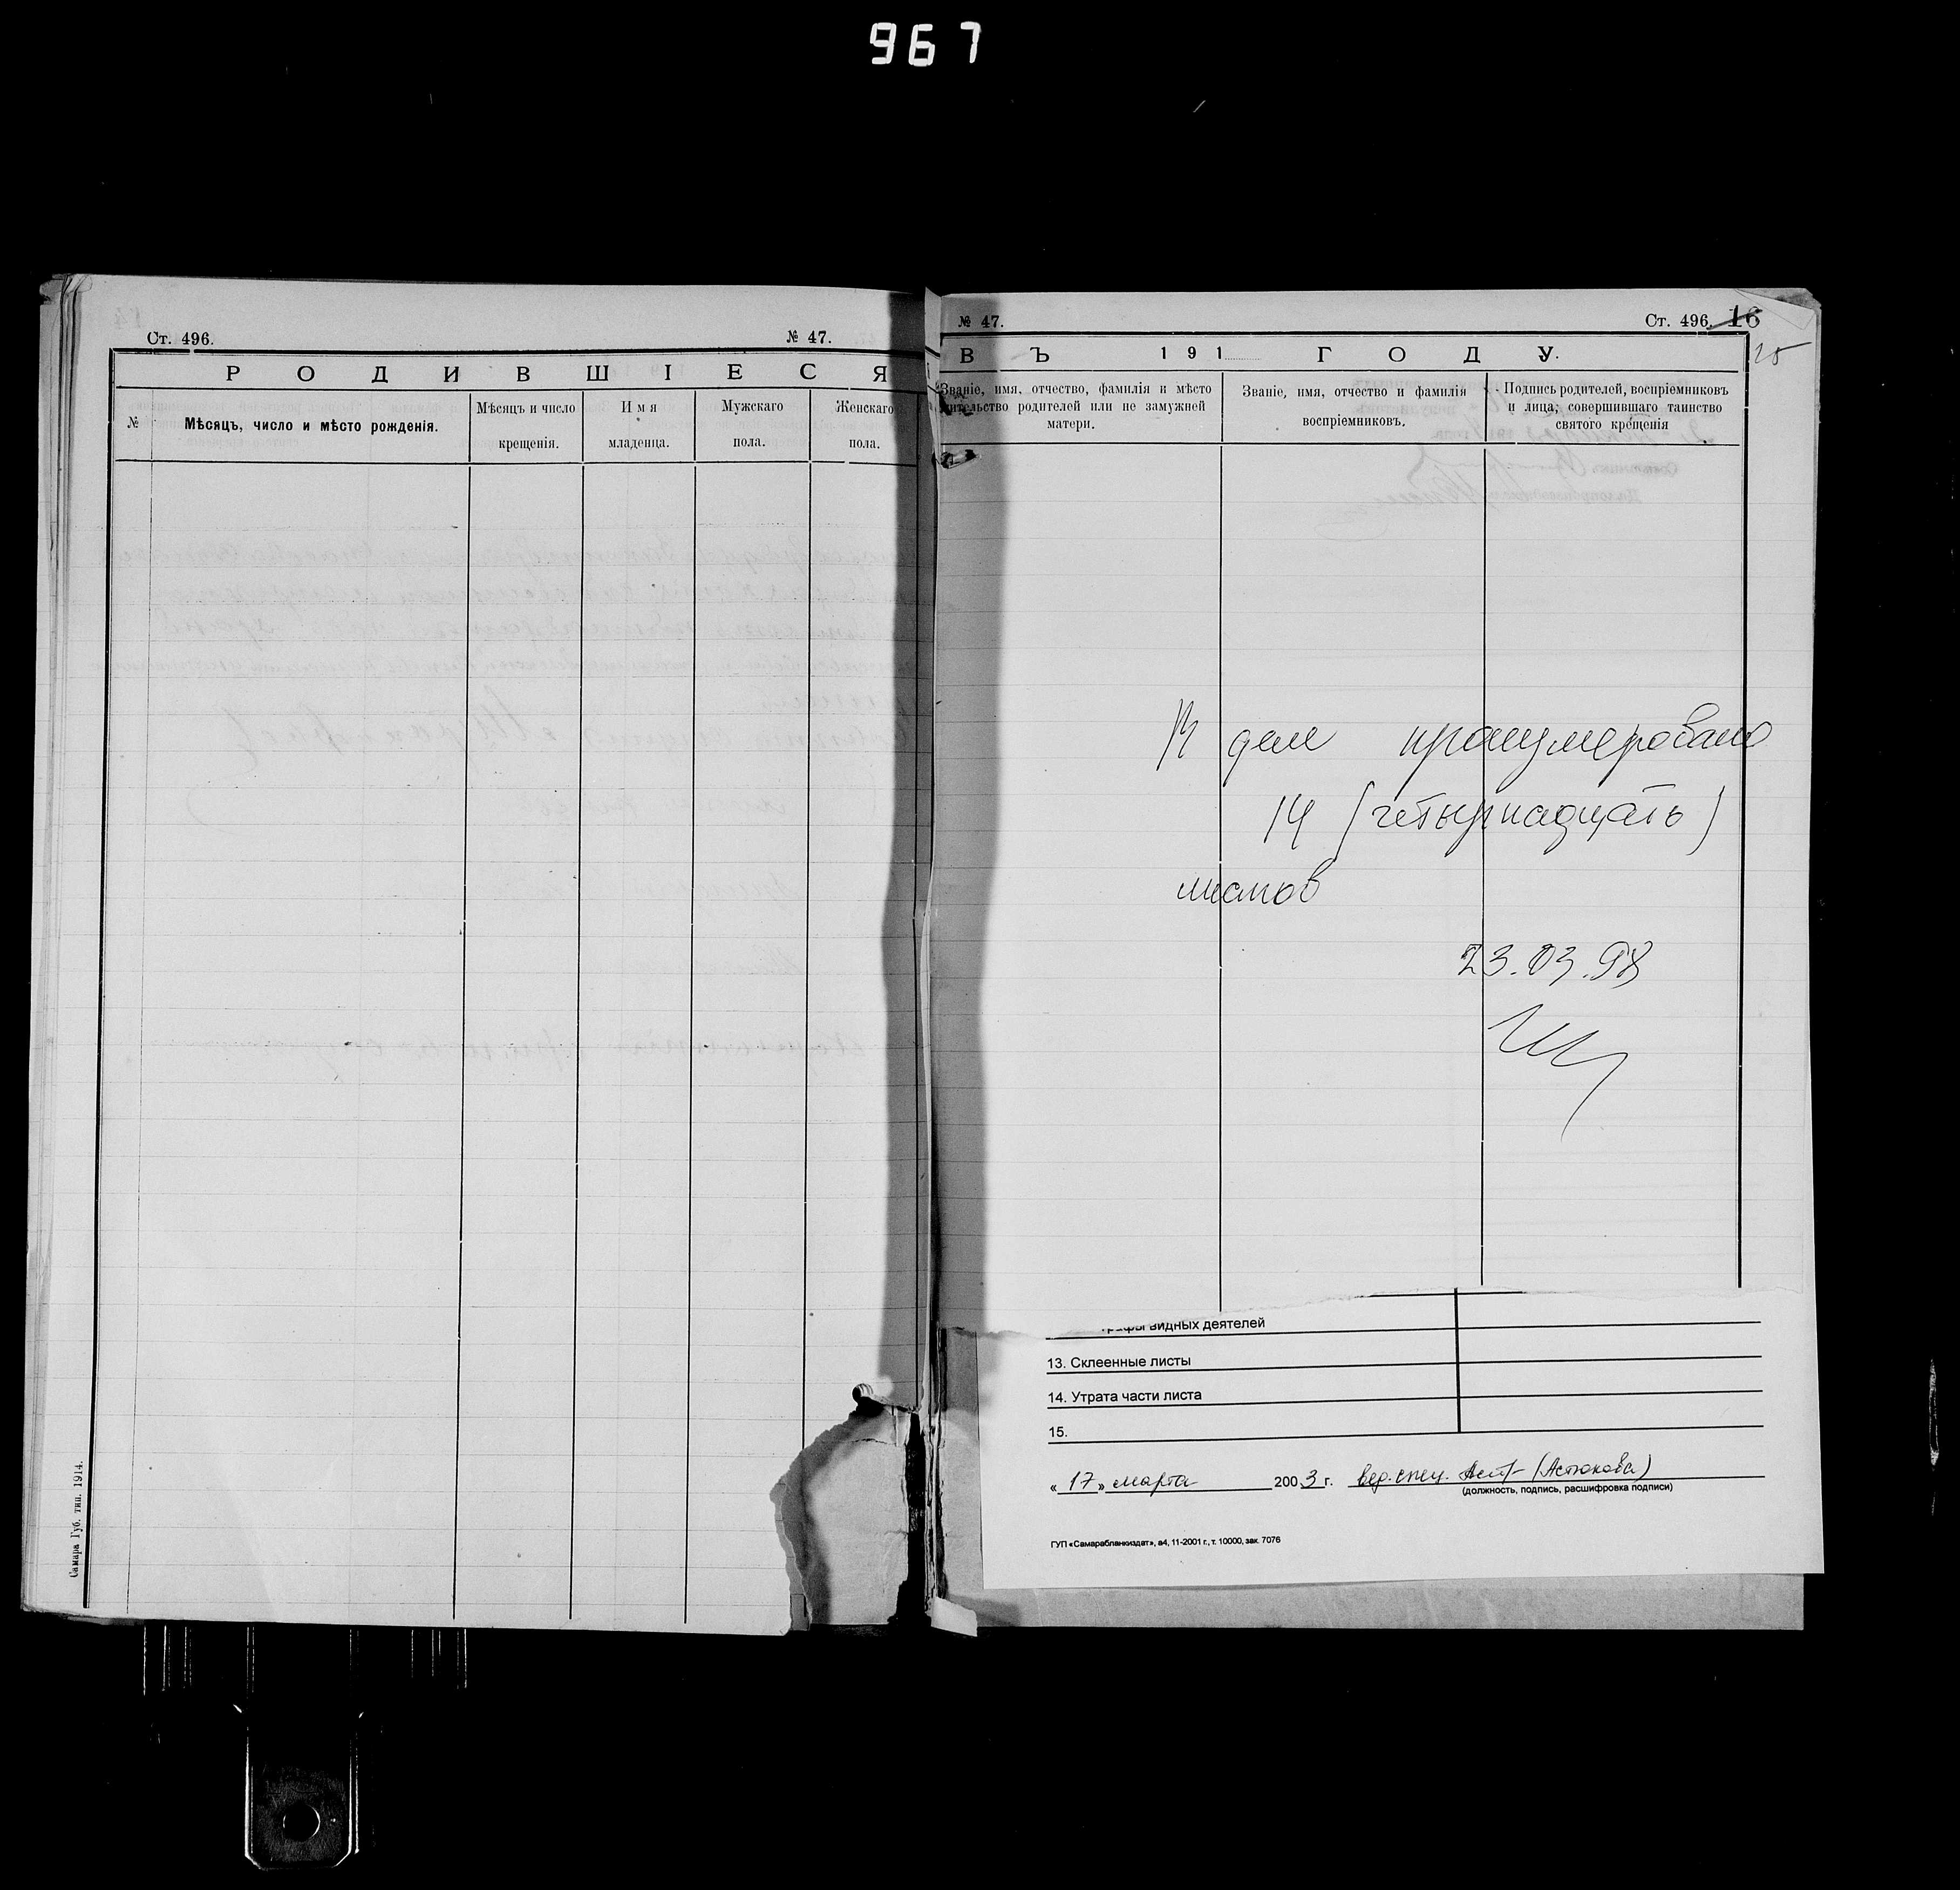 967
Ст. 496.
№ 47.
РОДИВШІЕСЯ
№
Мѣсяцъ, число и мѣсто рожденія.
Мѣсяцъ и число
крещенія.
Имя
младенца.
Мужскаго
пола.
Женскаго
пола.
Самара Губ. тип. 1914.
№ 47.
Ст. 496.
16
ВЪ 191 ГОДУ.
Званіе, имя, отчество, фамилія и мѣсто
жительство родителей или не замужней
матери.
Званіе, имя, отчество и фамилія
воспріемниковъ.
Подпись родителей, воспріемниковъ
и лица, совершившаго таинство
святого крещенія
В деле пронумеровано
14 (четырнадцать)
листов
23.03.98
видных деятелей
13. Склеенные листы
14. Утрата части листа
15.
«17» марта 2003 г. вед. спец. (Астюкова)
(должность, подпись, расшифровка подписи)
ГУП «Самарабланкиздат», а4, 11-2001 г., т. 10000, зак. 7076